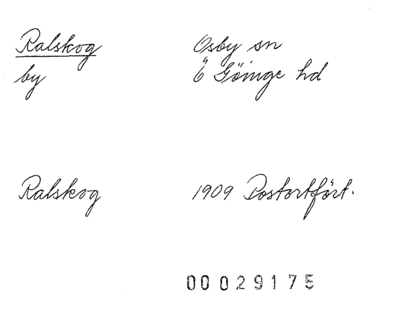 Ralskog Osby sn
by Ö Göinge hd
Ralskog 1909 Postortfört.
00029175